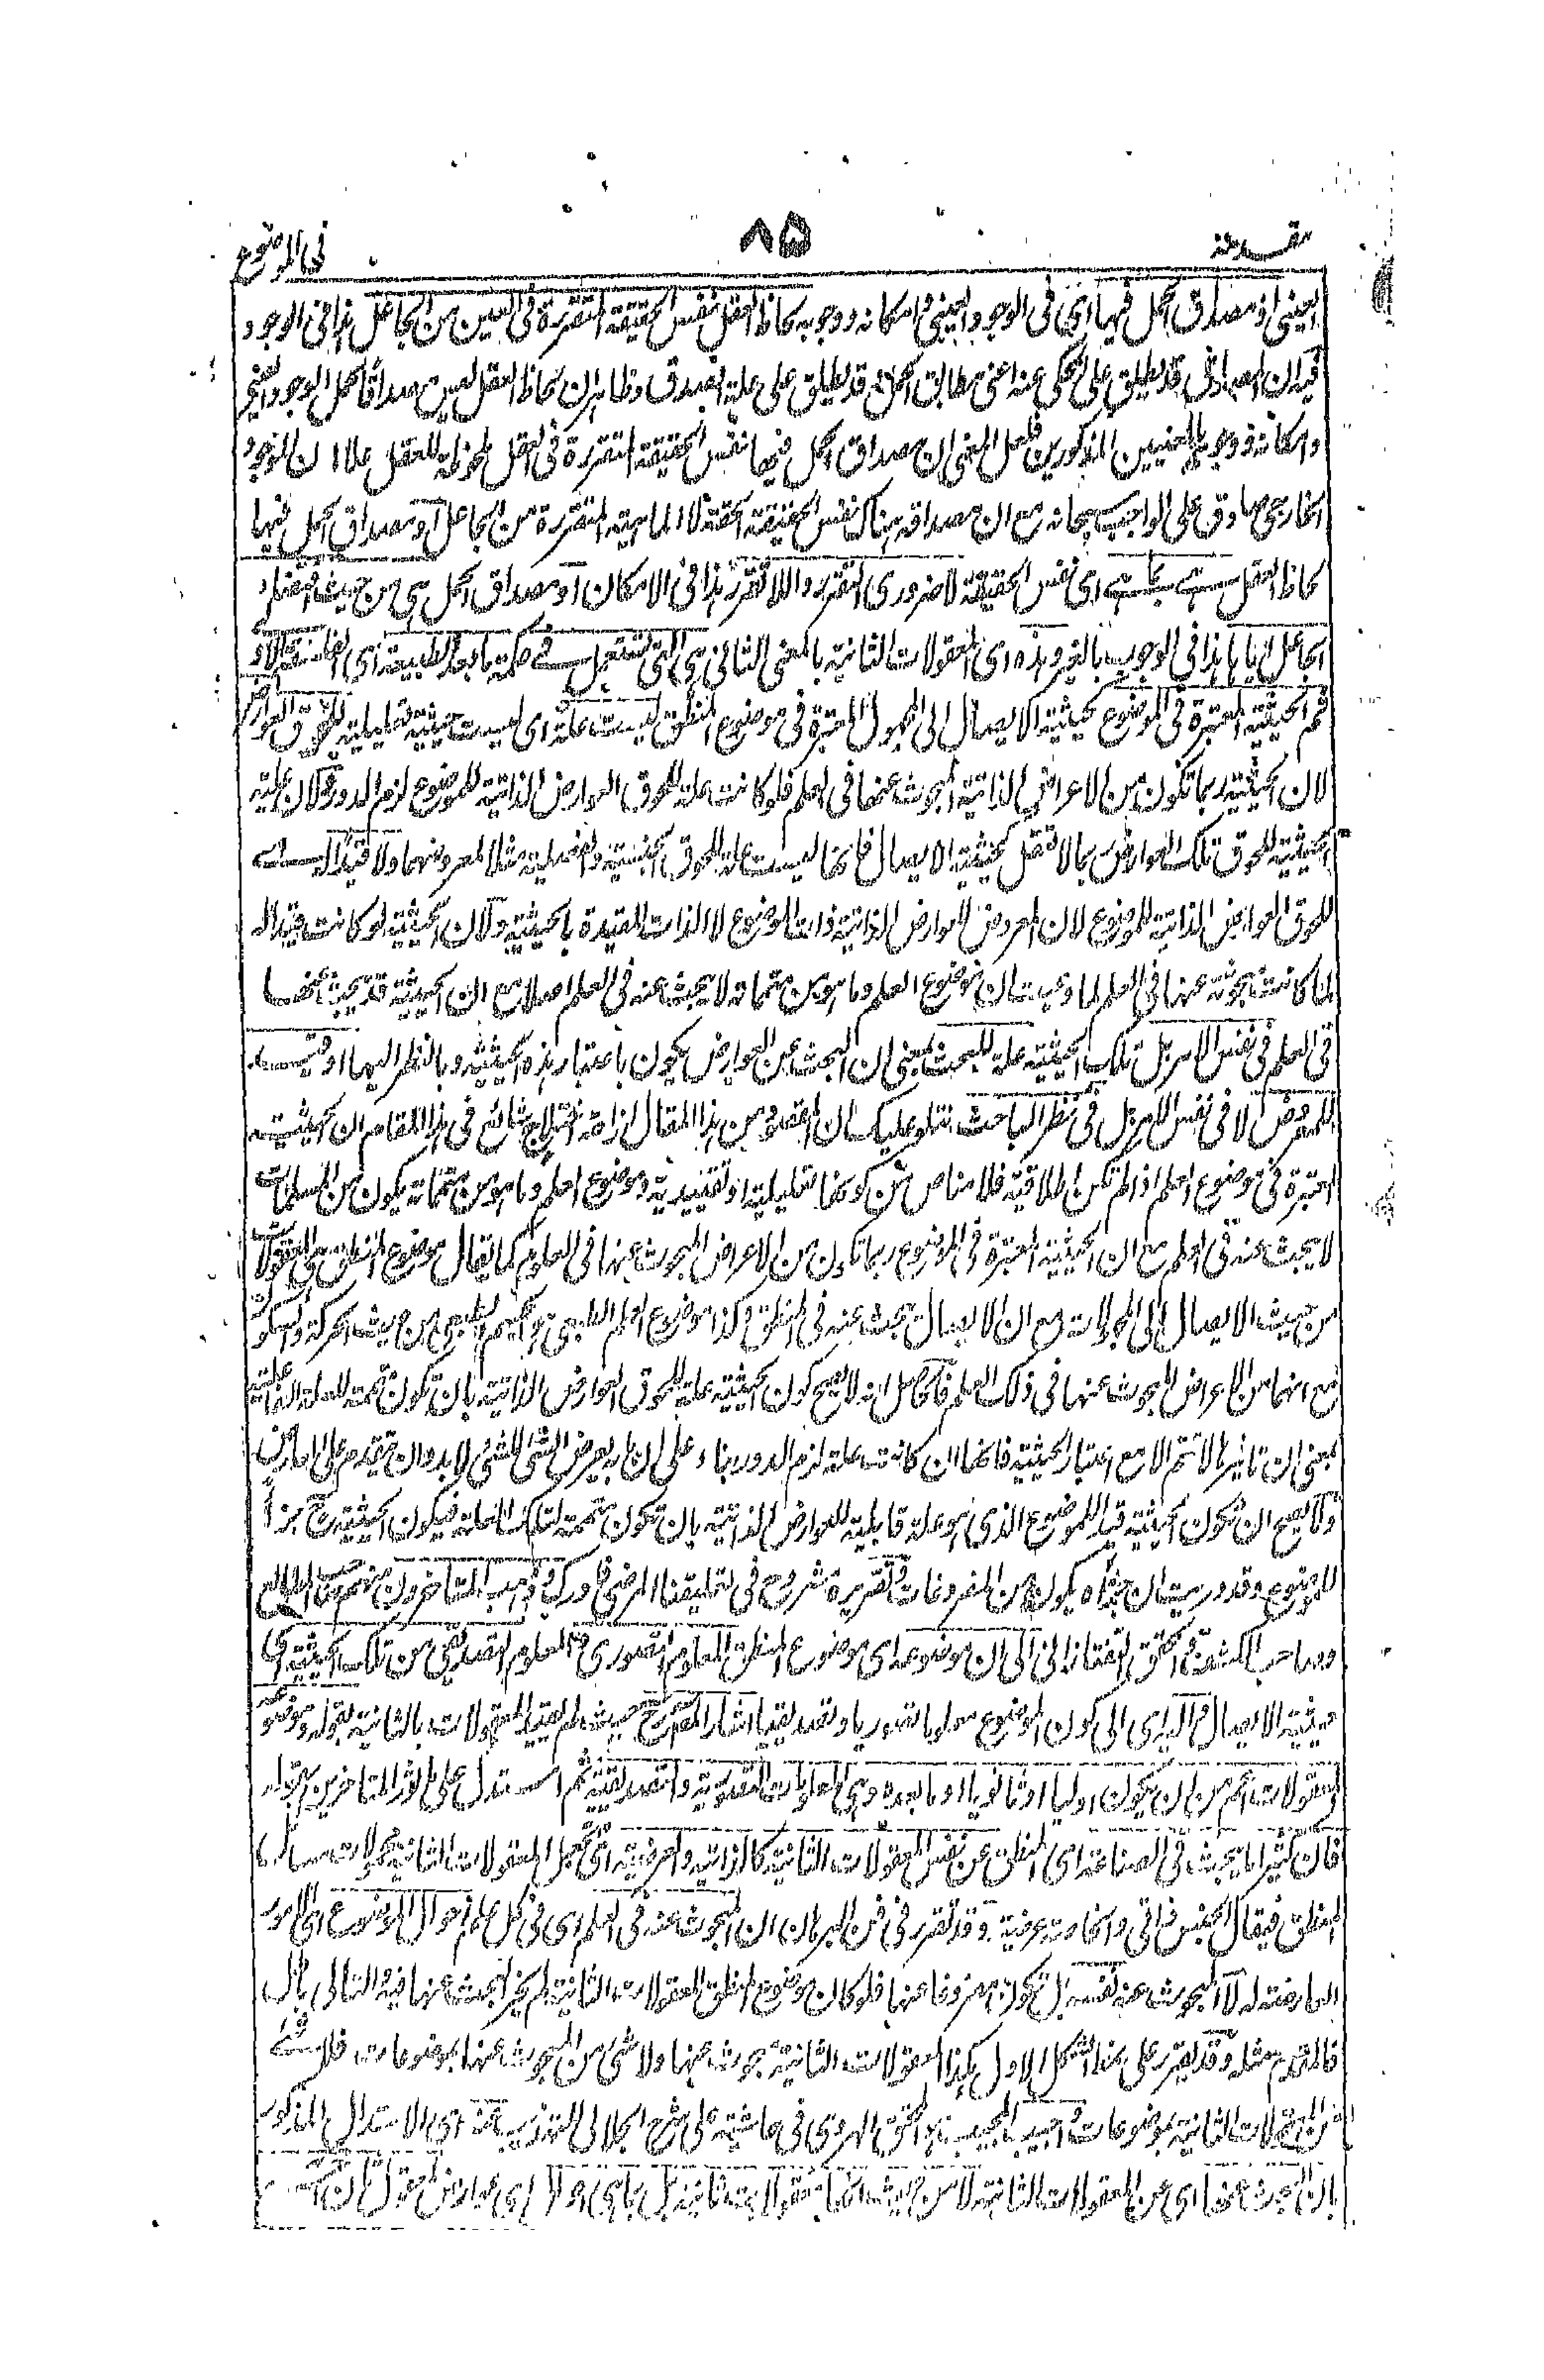 مقدمة ٨٥ في الموضوع
العيني اذ مصداق الحمل فيها اي في الوجود العيني وامكانه ووجوبه لحاظ العقل نفس الحقيقة المتقررة في العين من الجاعل هذا في الوجود
فيه ان المصداق قد يطلق على المحكى عنه اعني مطابق الحمل وقد يطلق على علة الصدق وظاهر ان لحاظ العقل ليس مصداقا لحمل الوجود العيني
وامكانه ووجوبه بالمعنيين المذكورين فلعل المعنى ان مصداق الحمل فيها نفس الحقيقة المتقررة في العقل ملحوظة للعقل علا ان الموجود
الخارجي صادق على الواجب سبحانه مع ان مصداقه هناك نفس الحقيقة الحقة لا الماهية المتقررة من الجاعل او مصداق الحمل فيها
لحاظ العقل اي نفس الحقيقة لا ضروري التقرر واللا تقرر هذا في الامكان او مصداق الحمل هي من حيث اقتضاء
الجاعل اياها هذا في الوجوب بالغير وهذه اي المعقولات الثانية بالمعنى الثاني هي التي تستعمل في حكمة ما بعد الطبيعة اي الفلسفة الاولى
ثم الحيثية المعتبرة في الموضوع كحيثية الايصال الى المجهول المعتبرة في موضوع المنطق ليست علة اي ليست حيثية تعليلية للحوق العوارض
لان الحيثية ربما تكون من الاعراض الذاتية المبحوث عنها في العلم فلو كانت علة للحوق العوارض الذاتية للموضوع لزم الدور ولان علية
الحيثية للحوق تلك العوارض مما لا تعقل كحيثية الايصال فانها ليست علة للحوق الجنسية والفصلية مثلا لمعروضهما ولا قيدا
للحوق العوارض الذاتية للموضوع لان المعروض للعوارض الذاتية ذات الموضوع لا الذات المقيدة بالحيثية ولان الحيثية لو كانت قيدا له
لما كانت مبحوثة عنها في العلم لما وعيت ان موضوع العلم وما هو من متمماته لا يبحث عنه في العلم اصلا مع ان الحيثية قد يبحث عنها
في العلم في نفس الامر بل تلك الحيثية علة للبحث بمعنى ان البحث عن العوارض يكون باعتبار هذه الحيثية وبالنظر اليها او قيد
للمعروض لا في نفس الامر بل في نظر الباحث نتلو عليك ان المقصود من هذا المقال ازاحة اختلاج شائع في هذا المقام ان الحيثية
المعتبرة في موضوع العلم اذا لم تكن اطلاقية فلا مناص من كونها تعليلية او تقييدية وموضوع العلم وما هو من متمماته يكون من المسلمات
لا يبحث عنه في العلم مع ان الحيثية المعتبرة في الموضوع ربما تكون من الاعراض المبحوث عنها في العلوم كما يقال موضوع المنطق هي المعقولات
من حيث الايصال الى المجهولات مع ان الايصال يبحث عنه في المنطق وكذا موضوع العلم الطبعي هو الجسم الطبيعي من حيث الحركة والسكون
مع انهما من الاعراض المبحوث عنها في ذلك العلم فالحاصل انه لا يصح كون الحيثية علة للحوق العوارض الذاتية بان تكون متممة للعلة الفاعلية
بمعنى ان تاثيرها لا يتم الا مع اعتبار الحيثية فانها ان كانت علة لزم الدور بناء على ان ما به يعرض الشئ للشئ لا بد وان يتقدم على العارض
ولا يصح ان تكون الحيثية قيدا للموضوع الذي هو علة قابلية للعوارض الذاتية بان تكون متممة لتلك العلة فيكون الحيثية ح جزأ
للموضوع وقد دريت ان جزأه يكون من المفروغات وتقريره مشروح في تعليقنا المرضى وذهب المتاخرون منهم صاحب المطالع
وصاحب الكشف والمحقق التفتازاني الى ان موضوعه اي موضوع المنطق المعلوم التصوري والمعلوم التصديقي من تلك الحيثية اي
حيثية الايصال والى كون الموضوع معلوما تصوريا وتصديقيا اشار المصرح حيث لم يقيد المعقولات بالثانية بقوله وموضوعه
المعقولات اعم من ان يكون اوليا او ثانويا او ما بعده وهي المعلومات التصورية والتصديقية ثم استدل على ماثور المتاخرين بقوله
فان كثيرا ما يبحث في الصناعة اي المنطق عن نفس المعقولات الثانية كالذاتية والعرضية اي يجعل المعقولات الثانية محمولات مسائل
المنطق فيقال الجنس ذاتي والخاصة عرضية وقد تقرر في فن البرهان ان المبحوث عنه في العلم اي في كل علم احوال الموضوع اي الامور
العارضة له لا المبحوث عنه نفسه بل تكون مفروغا عنها فلو كان موضوع المنطق المعقولات الثانية لم يجز البحث عنها فيه التالي باطل
فالمقدم مثله وقد يقرر على نمط الشكل الاول هكذا المعقولات الثانية مبحوث عنها ولا شئ من المبحوث عنها بموضوعات فلا شئ
من المعقولات الثانية بموضوعات واجيب المجيب هو المحقق الهروي في حاشيته على شرح الجلالي للتهذيب عنه اي الاستدلال المذكور
بان البحث عنها اي عن المعقولات الثانية لا من حيث انها معقولات ثانية بل بما هي احوال اي عوارض لمعقول ثان